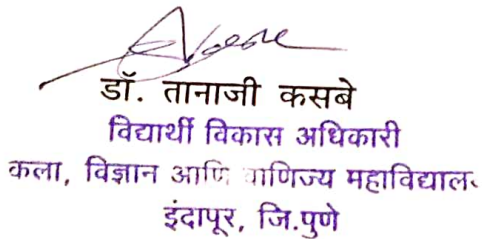 डॉ. तानाजी कसबे
विद्यार्थी विकास अधिकारी
कला, विज्ञान आणि वाणिज्य महाविद्याल
इंदापूर, जि.पुणे